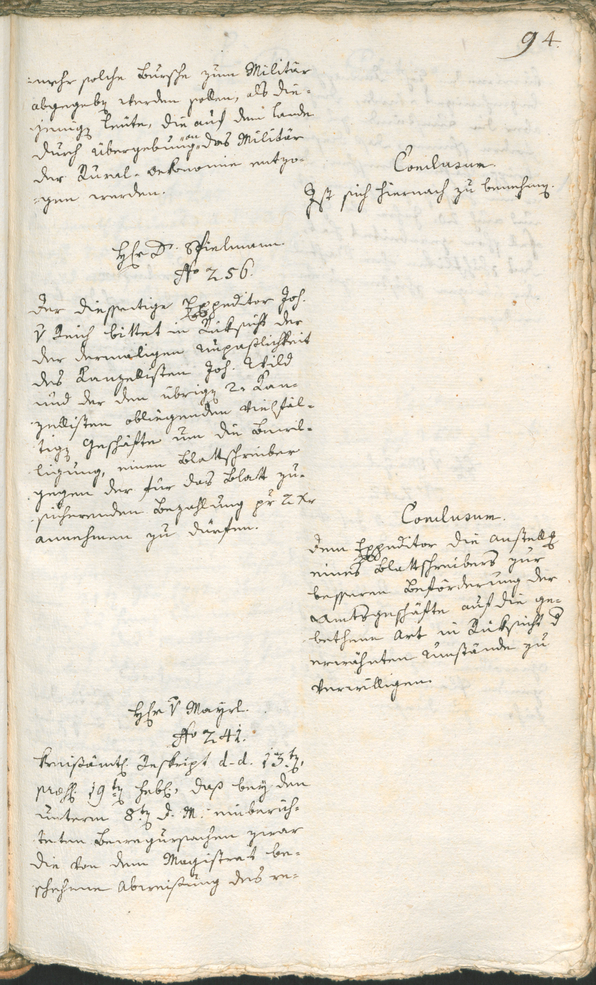 94.
mehr solche Bursche zum Militär
abgegeben werden sollen, als die-
jenige Leute, die auf dem Lande
durch Übergebung an das Militär
der Rural-Oekonomie entzo-
gen werden.
Conclusum
Ist sich hiernach zu benehmen.
Hr. D. Spielmann
No 256.
Der diesseitige Expeditor Joh.
v Reich bittet in Rüksicht der
der dermaligen Unpaßlichkeit
des Kanzellisten Joh. Wild
und der den übrigen 2 Kan-
zellisten obliegenden vielfäl-
tigen Geschäfte um die Bewil-
ligung, einen Blattschreiber
gegen der für das Blatt zu-
sicherenden Bezahlung pr 2 Xr
annehmen zu dürfen.
Conclusum.
Dem Expeditor die Anstellg
eines Blattschreibers zur
besseren Beförderung der
Amtsgeschäfte auf die ge-
bethene Art in Rüksicht d
erwähnten Umstände zu
verwilligen.
Hr v Mayrl.
No 241.
Kreisämtl Reskript d. d. 13ten,
praes. 19ten, daß bey den
unterm 8ten d. M. einberich-
teten Bewegursachen zwar
die von dem Magistrat be-
schehene Abweisung des re-